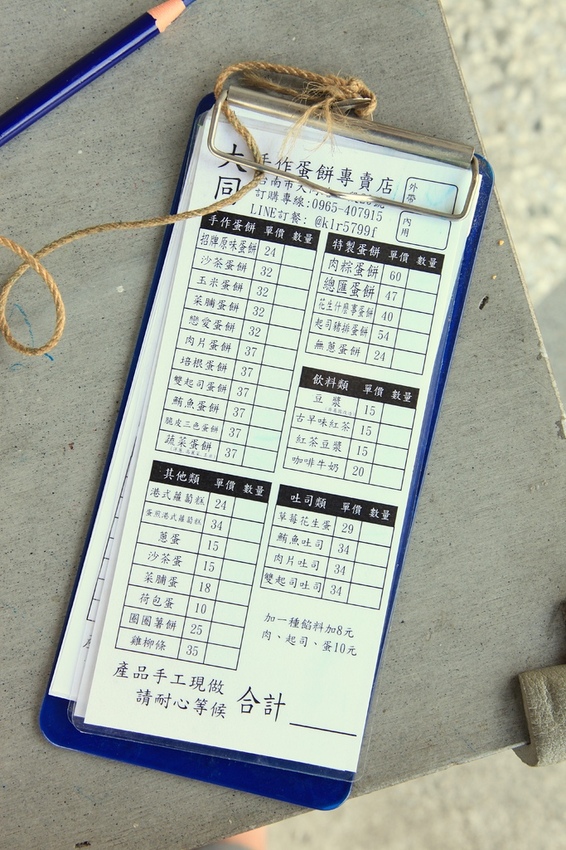 大同
手作蛋餅專賣店
台南市大同
訂購專線:0965-407915
LINE訂餐: @klr5799f
外帶
內用
手作蛋餅 單價 數量
招牌原味蛋餅 24
沙茶蛋餅 32
玉米蛋餅 32
菜脯蛋餅 32
戀愛蛋餅 32
肉片蛋餅 37
培根蛋餅 37
雙起司蛋餅 37
鮪魚蛋餅 37
脆皮三色蛋餅 37
蔬菜蛋餅 37
特製蛋餅 單價 數量
肉粽蛋餅 60
總匯蛋餅 47
花生什麼事蛋餅 40
起司豬排蛋餅 54
無蔥蛋餅 24
飲料類 單價 數量
豆漿 15
古早味紅茶 15
紅茶豆漿 15
咖啡牛奶 20
其他類 單價 數量
港式蘿蔔糕 24
蛋煎港式蘿蔔糕 34
蔥蛋 15
沙茶蛋 15
菜脯蛋 18
荷包蛋 10
圈圈薯餅 25
雞柳條 35
吐司類 單價 數量
草莓花生蛋 29
鮪魚吐司 34
肉片吐司 34
雙起司吐司 34
加一種餡料加8元
肉、起司、蛋10元
產品手工現做
請耐心等候
合計